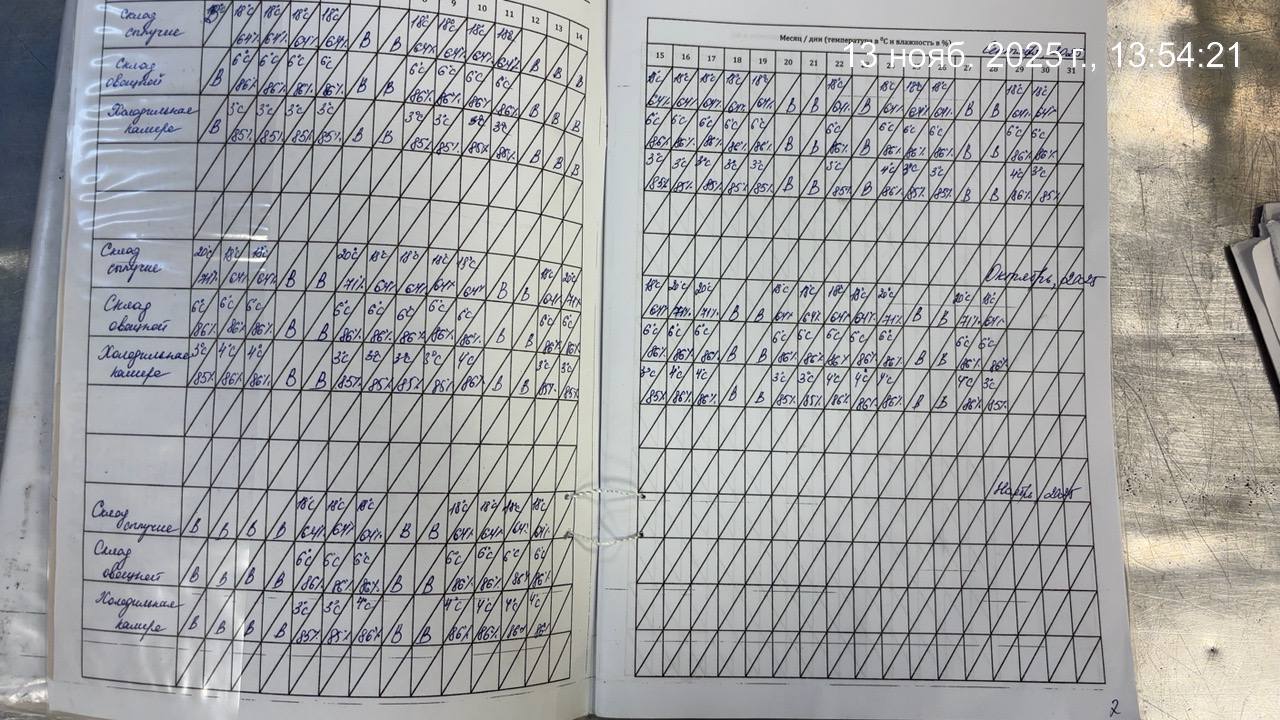 13 нояб. 2025 г., 13:54:21
Месяц / дни (температура в °С и влажность в %)
8 9 10 11 12 13 14
15 16 17 18 19 20 21 22 28 29 30 31
Склад сыпучие 18°C 18°C 18°C 18°C 18°C 18°C 18°C
64% 64% 64% 64% В В 64% 64% 64% 64% В В В
Склад овощной 6°C 6°C 6°C 6°C 6°C 6°C 6°C 6°C
В 86% 86% 86% 86% В В 86% 86% 86% 86% В В В
Холодильная камера 3°C 3°C 3°C 3°C 3°C 3°C 3°C 3°C
В 85% 85% 85% 85% В В 85% 85% 85% 85% В В В
18°C 18°C 18°C 18°C 18°C 18°C 18°C 18°C 18°C 18°C 18°C
64% 64% 64% 64% 64% В В 64% В 64% 64% 64% В В 64% 64%
6°C 6°C 6°C 6°C 6°C 6°C 6°C 6°C 6°C 6°C 6°C
86% 86% 86% 86% 86% В В 86% В 86% 86% 86% В В 86% 86%
3°C 3°C 3°C 3°C 3°C 3°C 4°C 3°C 3°C 4°C 3°C
85% 85% 85% 85% 85% В В 85% В 86% 85% 85% В В 86% 85%
Октябрь, 2025
Склад сыпучие 20°C 18°C 18°C 20°C 18°C 18°C 18°C 18°C 18°C 20°C
71% 64% 64% В В 71% 64% 64% 64% 64% В В 64% 71%
Склад овощной 6°C 6°C 6°C 6°C 6°C 6°C 6°C 6°C 6°C 6°C
86% 86% 86% В В 86% 86% 86% 86% 86% В В 86% 86%
Холодильная камера 3°C 4°C 4°C 3°C 3°C 3°C 3°C 4°C 3°C 3°C
85% 86% 86% В В 85% 85% 85% 85% 86% В В 85% 85%
18°C 20°C 20°C 18°C 18°C 18°C 18°C 20°C 20°C 18°C
64% 71% 71% В В 64% 64% 64% 64% 71% В В 71% 64%
6°C 6°C 6°C 6°C 6°C 6°C 6°C 6°C 6°C 6°C
86% 86% 86% В В 86% 86% 86% 86% 86% В В 86% 86%
3°C 4°C 4°C 3°C 3°C 4°C 4°C 4°C 4°C 3°C
85% 86% 86% В В 85% 85% 86% 86% 86% В В 86% 85%
2025
Склад сыпучие В В В В 18°C 18°C 18°C В В 18°C 18°C 18°C 18°C
64% 64% 64% 64% 64% 64% 64%
Склад овощной В В В В 6°C 6°C 6°C В В 6°C 6°C 6°C 6°C
86% 86% 86% 86% 86% 86% 86%
Холодильная камера В В В В 3°C 3°C 4°C В В 4°C 4°C 4°C 4°C
85% 85% 86% 86% 86% 86% 86%
2